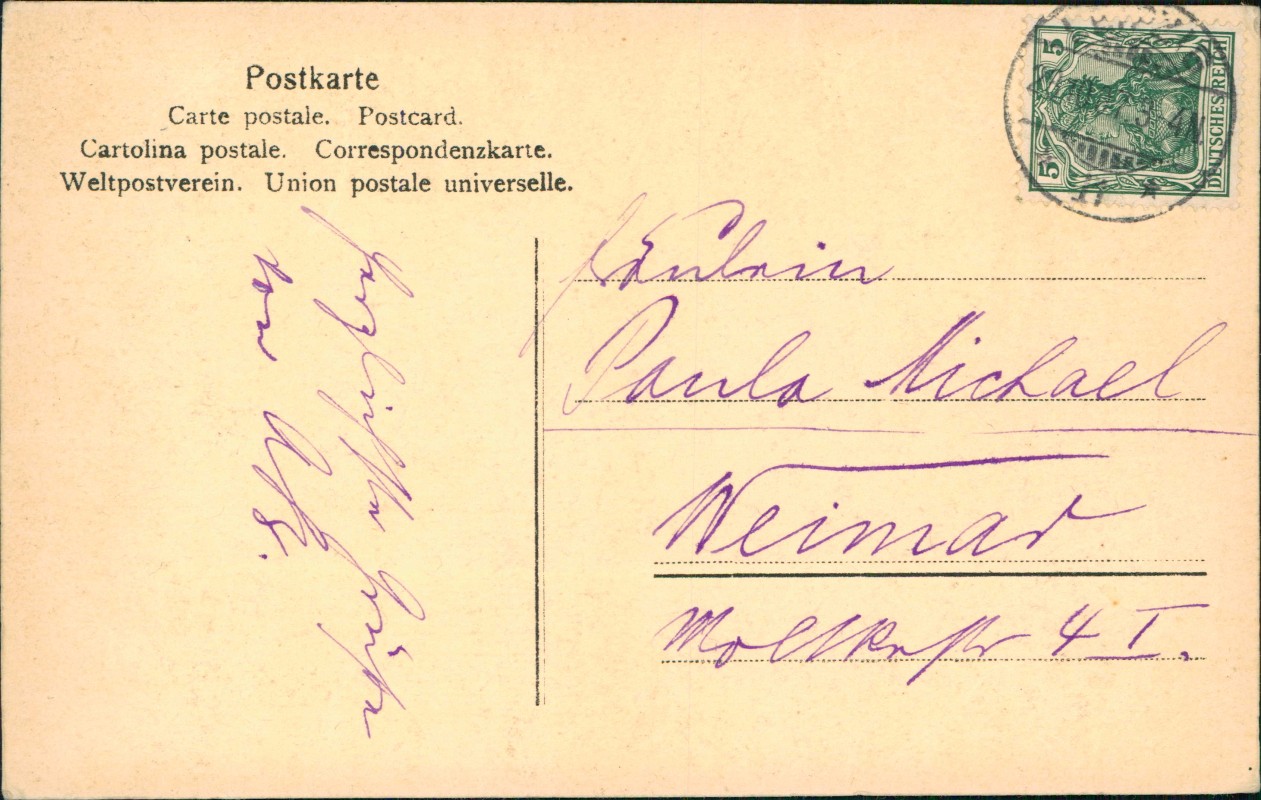 Postkarte
Carte postale. Postcard.
Cartolina postale. Correspondenzkarte.
Weltpostverein. Union postale universelle.
5
5
DEUTSCHES REICH
4N
Herzlichste Grüße
von
Fräulein
Paula Michael
Weimar
Moltkestr 4 I.